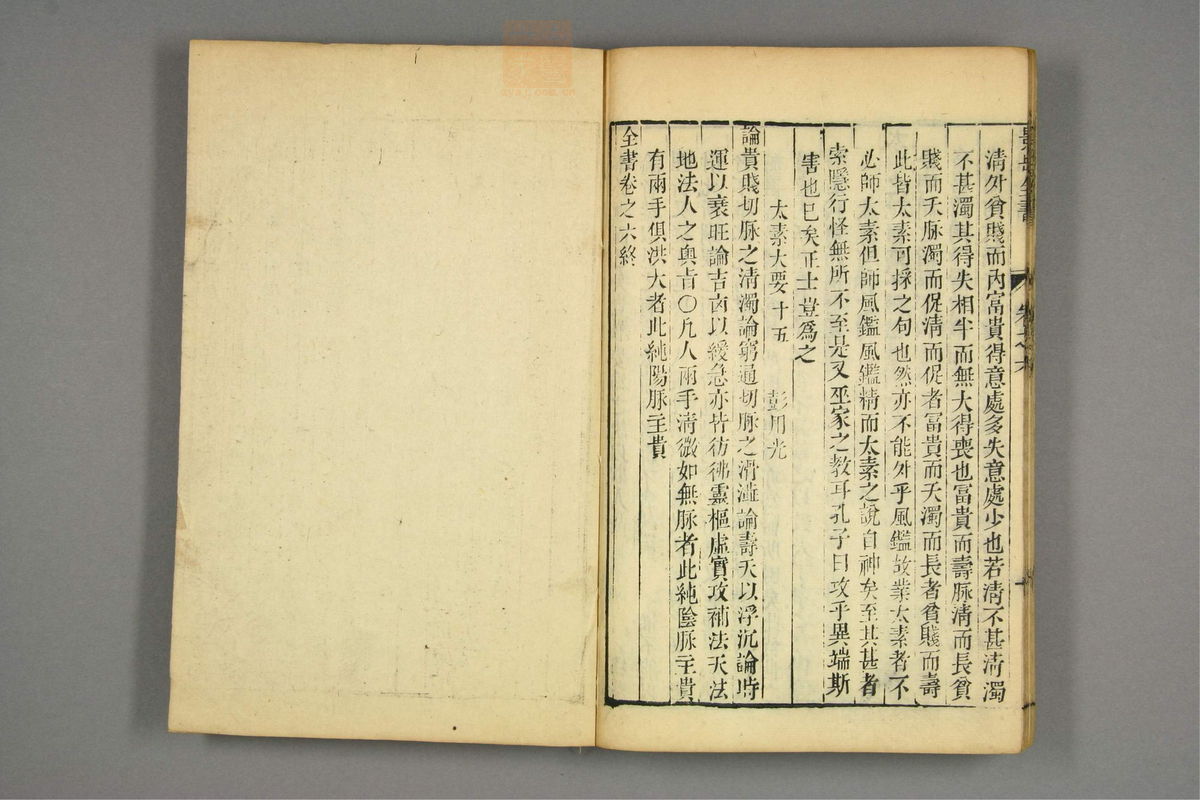 景岳全書
卷之六
清外貧賤而內富貴得意處多失意處少也若清不甚清濁
不甚濁其得失相半而無大得喪也富貴而壽脉清而長貧
賤而夭脉濁而促清而促者富貴而夭濁而長者貧賤而壽
此皆太素可採之句也然亦不能外乎風鑑故業太素者不
必師太素但師風鑑風鑑精而太素之說自神矣至其甚者
索隱行怪無所不至是又巫家之教耳孔子曰攻乎異端斯
害也已矣正士豈爲之
太素大要十五 彭用光
論貴賤切脉之清濁論窮通切脉之滑濇論壽夭以浮沉論時
運以衰旺論吉凶以緩急亦皆彷彿靈樞虛實攻補法天法
地法人之奥㫖〇凢人兩手清微如無脉者此純隂脉主貴
有兩手俱洪大者此純陽脉主貴
全書卷之六終